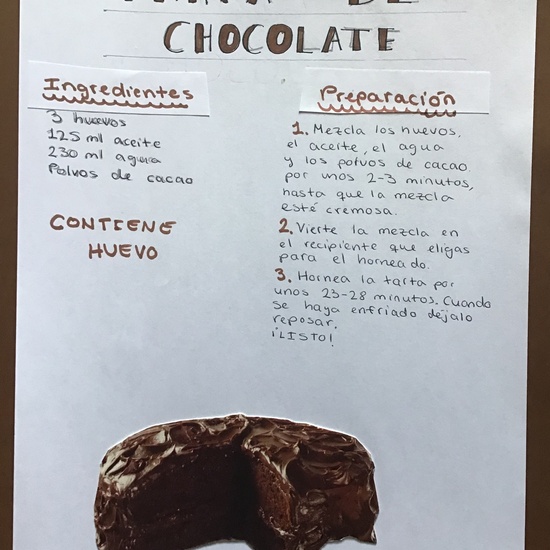 DE
CHOCOLATE
Ingredientes
3 huevos
125 ml aceite
230 ml agua
Polvos de cacao
CONTIENE
HUEVO
Preparación
1. Mezcla los huevos,
el aceite, el agua
y los polvos de cacao
por unos 2-3 minutos,
hasta que la mezcla
esté cremosa.
2. Vierte la mezcla en
el recipiente que eligas
para el horneado.
3. Hornea la tarta por
unos 23-28 minutos. Cuando
se haya enfriado déjalo
reposar.
¡LISTO!